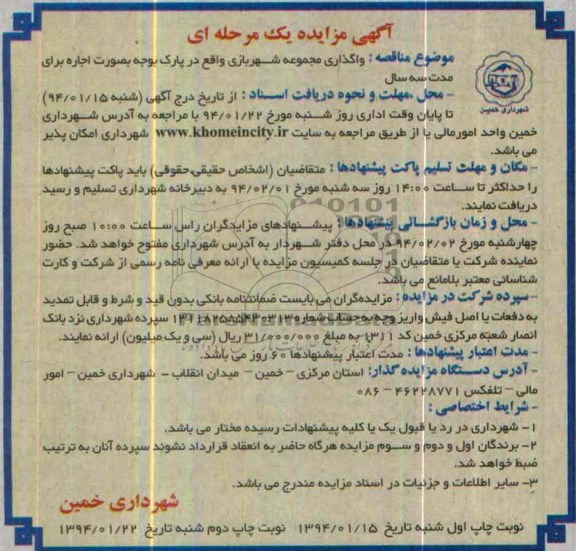 آگهی مزایده یک مرحله ای
شهرداری خمین
موضوع مناقصه : واگذاری مجموعه شهربازی واقع در پارک بوجه بصورت اجاره برای
مدت سه سال
- محل ،مهلت و نحوه دریافت اسناد : از تاریخ درج آگهی (شنبه ۹۴/۰۱/۱۵)
تا پایان وقت اداری روز شنبه مورخ ۹۴/۰۱/۲۲ با مراجعه به آدرس شهرداری
خمین واحد امورمالی یا از طریق مراجعه به سایت www.khomeincity.ir شهرداری امکان پذیر
می باشد.
- مکان و مهلت تسلیم پاکت پیشنهادها : متقاضیان (اشخاص حقیقی،حقوقی) باید پاکت پیشنهادها
را حداکثر تا ساعت ۱۴:۰۰ روز سه شنبه مورخ ۹۴/۰۲/۰۱ به دبیرخانه شهرداری تسلیم و رسید
دریافت نمایند.
- محل و زمان بازگشائی پیشنهادها : پیشنهادهای مزایدگران راس ساعت ۱۰:۰۰ صبح روز
چهارشنبه مورخ ۹۴/۰۲/۰۲ در محل دفتر شهردار به آدرس شهرداری مفتوح خواهد شد. حضور
نماینده شرکت یا متقاضیان در جلسه کمیسیون مزایده با ارائه معرفی نامه رسمی از شرکت و کارت
شناسائی معتبر بلامانع می باشد.
- سپرده شرکت در مزایده : مزایده‌گران می بایست ضمانتنامه بانکی بدون قید و شرط و قابل تمدید
به دفعات یا اصل فیش واریز وجه به حساب شماره سپرده شهرداری نزد بانک
انصار شعبه مرکزی خمین کد به مبلغ ۳۱/۰۰۰/۰۰۰ ریال (سی و یک میلیون) ارائه نمایند.
- مدت اعتبار پیشنهادها : مدت اعتبار پیشنهادها ۶۰ روز می باشد.
- آدرس دستگاه مزایده گذار: استان مرکزی – خمین – میدان انقلاب - شهرداری خمین – امور
مالی – تلفکس ۴۶۲۲۸۷۷۱ – ۰۸۶
- شرایط اختصاصی :
۱- شهرداری در رد یا قبول یک یا کلیه پیشنهادات رسیده مختار می باشد.
۲- برندگان اول و دوم و سوم مزایده هرگاه حاضر به انعقاد قرارداد نشوند سپرده آنان به ترتیب
ضبط خواهد شد.
۳- سایر اطلاعات و جزئیات در اسناد مزایده مندرج می باشد.
شهرداری خمین
نوبت چاپ اول شنبه تاریخ ۱۳۹۴/۰۱/۱۵ نوبت چاپ دوم شنبه تاریخ ۱۳۹۴/۰۱/۲۲